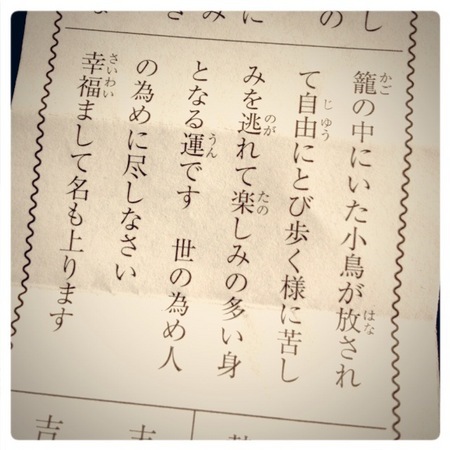 かご はな
籠の中にいた小鳥が放され
じゆう
て自由にとび歩く様に苦し
のが たの
みを逃れて楽しみの多い身
うん
となる運です　世の為め人
の為めに尽しなさい
さいわい
幸福まして名も上ります
吉